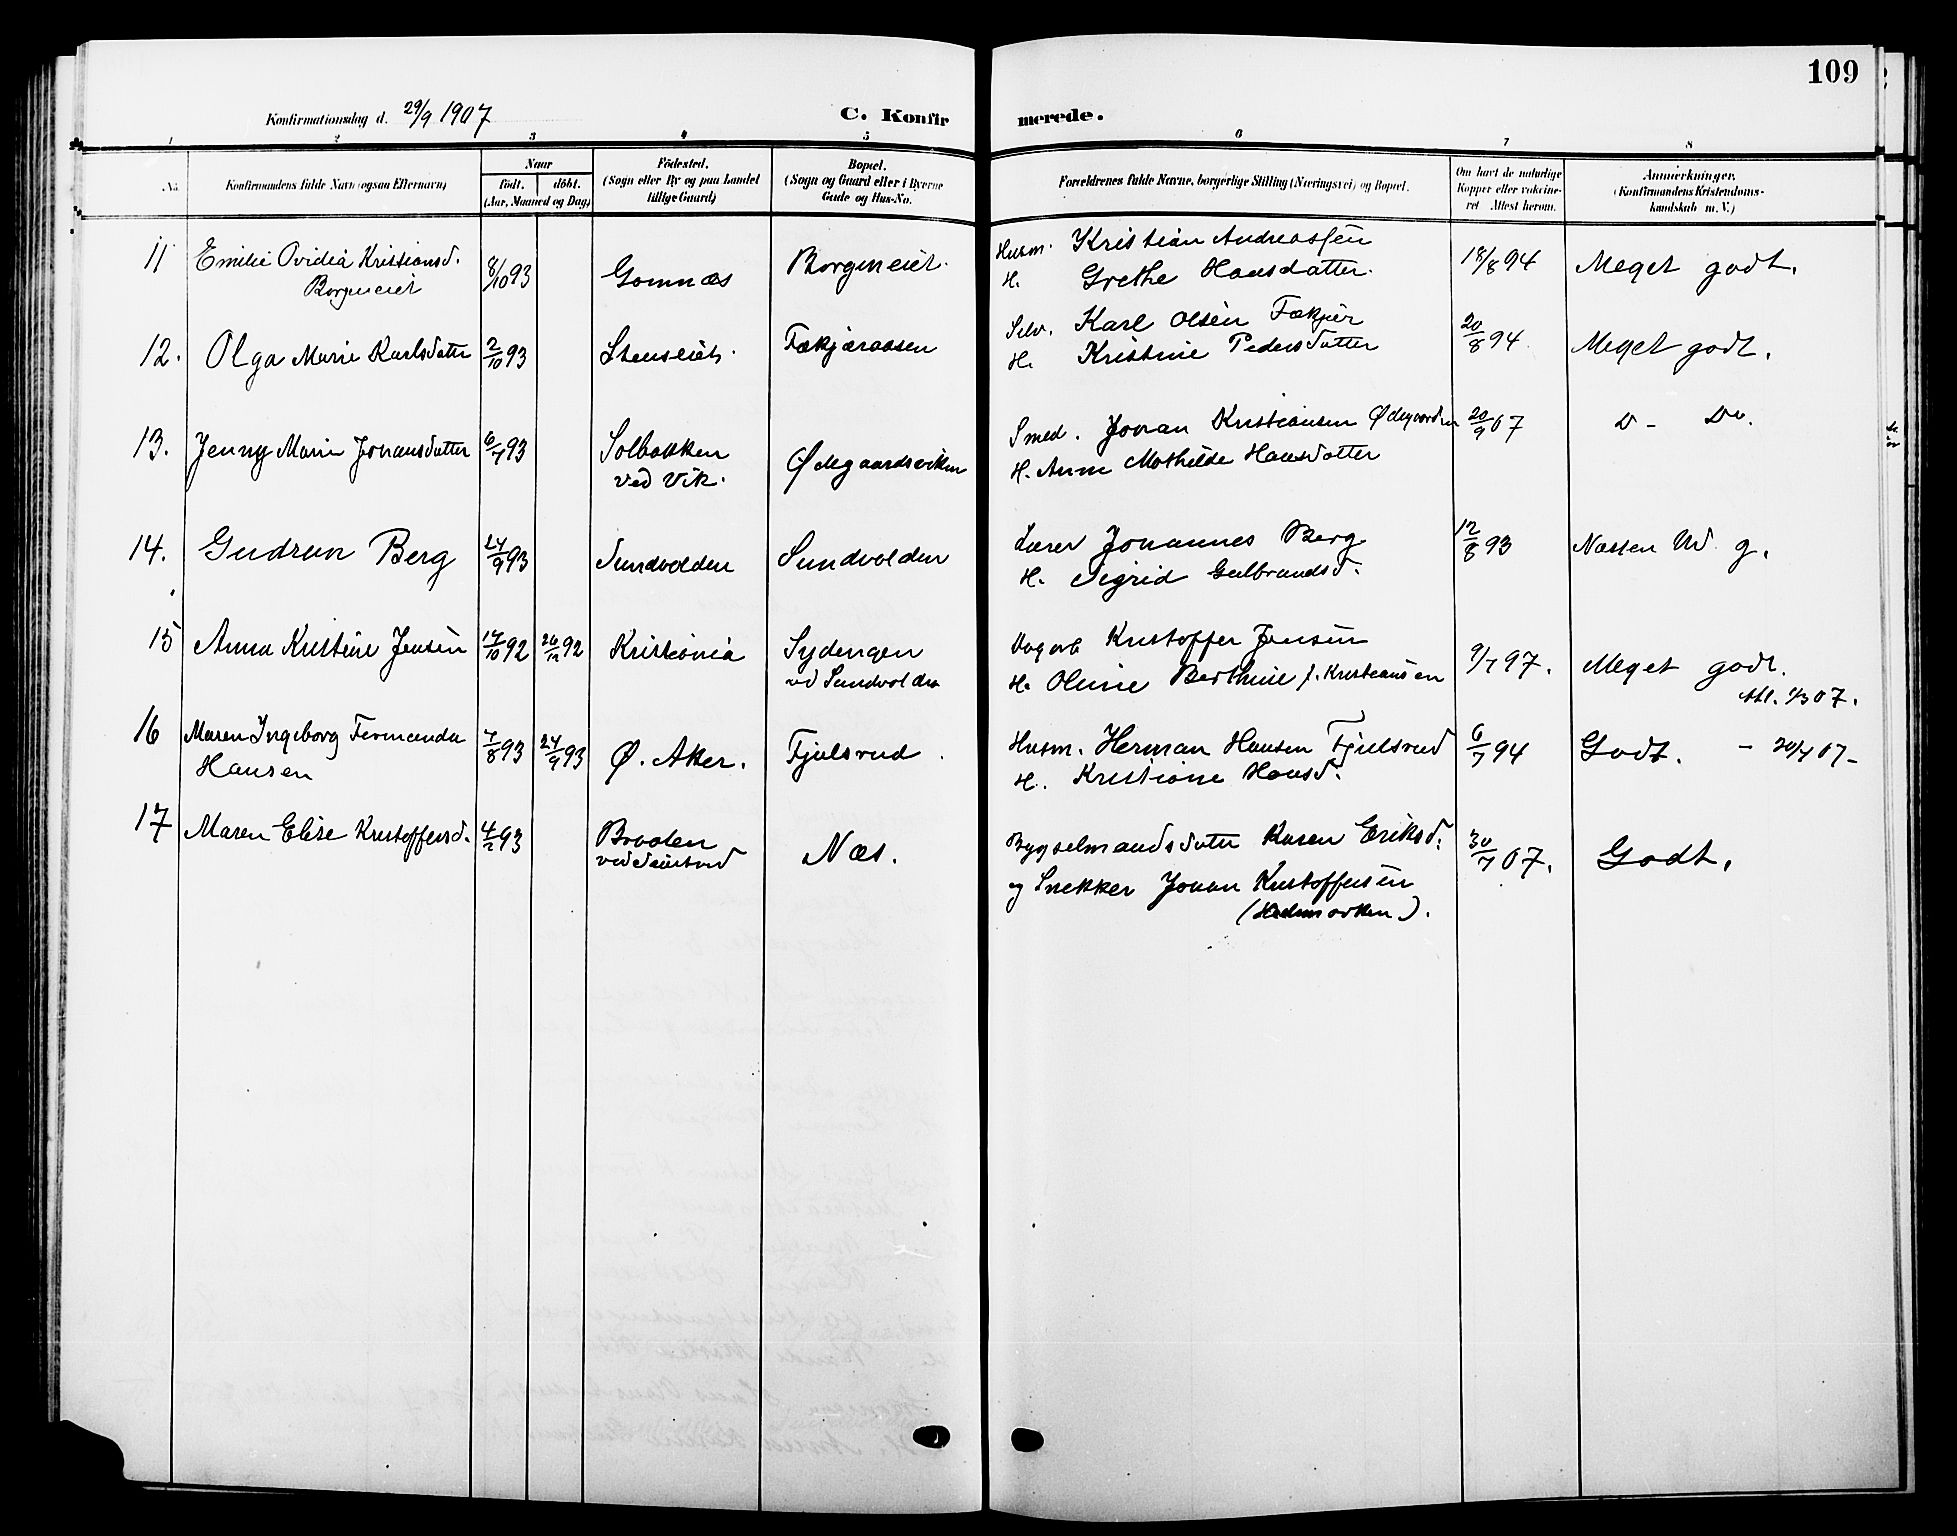 109
Konfirmationsdag d. 29/9 1907
C. Konfirmerede.
1 2 3 4 5 6 7 8
No.
Konfirmandens fulde Navn (ogsaa Efternavn)
Naar
födt. döbt.
(Aar, Maaned og Dag)
Födested.
(Sogn eller By og paa Landet
tillige Gaard)
Bopæl.
(Sogn og Gaard eller i Byerne
Gade og Hus-No.
Forældrenes fulde Navne, borgerlige Stilling (Næringsvei) og Bopæl.
Om havt de naturlige
Kopper eller vakcine-
ret Attest herom.
Anmerkninger.
(Konfirmandens Kristendoms-
kundskab m. V.)
11 Emilie Ovidia Kristiansd. 8/10 93 Gomnæs Borgeneiet. Husm. Kristian Andreassen 18/8 94 Meget godt.
Borgeneiet H. Grethe Hansdatter.
12. Olga Marie Karlsdatter 2/10 93 Stenseiet. Fækjæraasen Selv. Karl Olsen Fækjær 20/8 94 Meget godt.
H. Kristine Pedersdatter
13. Jenny Marie Johansdatter 6/7 93 Solbakken Ødegaardsviken Smed. Johan Kristiansen Ødegaarden 20/9 07 D - Do.
ved Vik. H. Anne Mathilde Hansdatter
14. Gudrun Berg 24/9 93 Sundvolden Sundvolden Lærer Johannes Berg 12/8 93 Næsten Ud. g.
H. Sigrid Gulbrandsd.
15 Anna Kristine Jensen 17/10 92 26/12 92 Kristiania Sydengen Kristoffer Jensen 9/7 97. Meget godt.
ved Sundvolden H. Oline Berthine f. Kristiansen 07.
16 Maren Ingeborg Fernanda 7/8 93 24/9 93 Ø. Aker. Fjulsrud. Husm. Herman Hansen Fjulsrud 6/7 94 Godt. - 20/7 07-
Hansen H. Kristiane Hansd.
17 Maren Elise Kristoffersd. 4/2 93 Braaten Næs. Bygselmandsdatter Karen Eriksd. 30/7 07. Godt.
ved og Snekker Johan Kristoffersen
(Hedemarken).